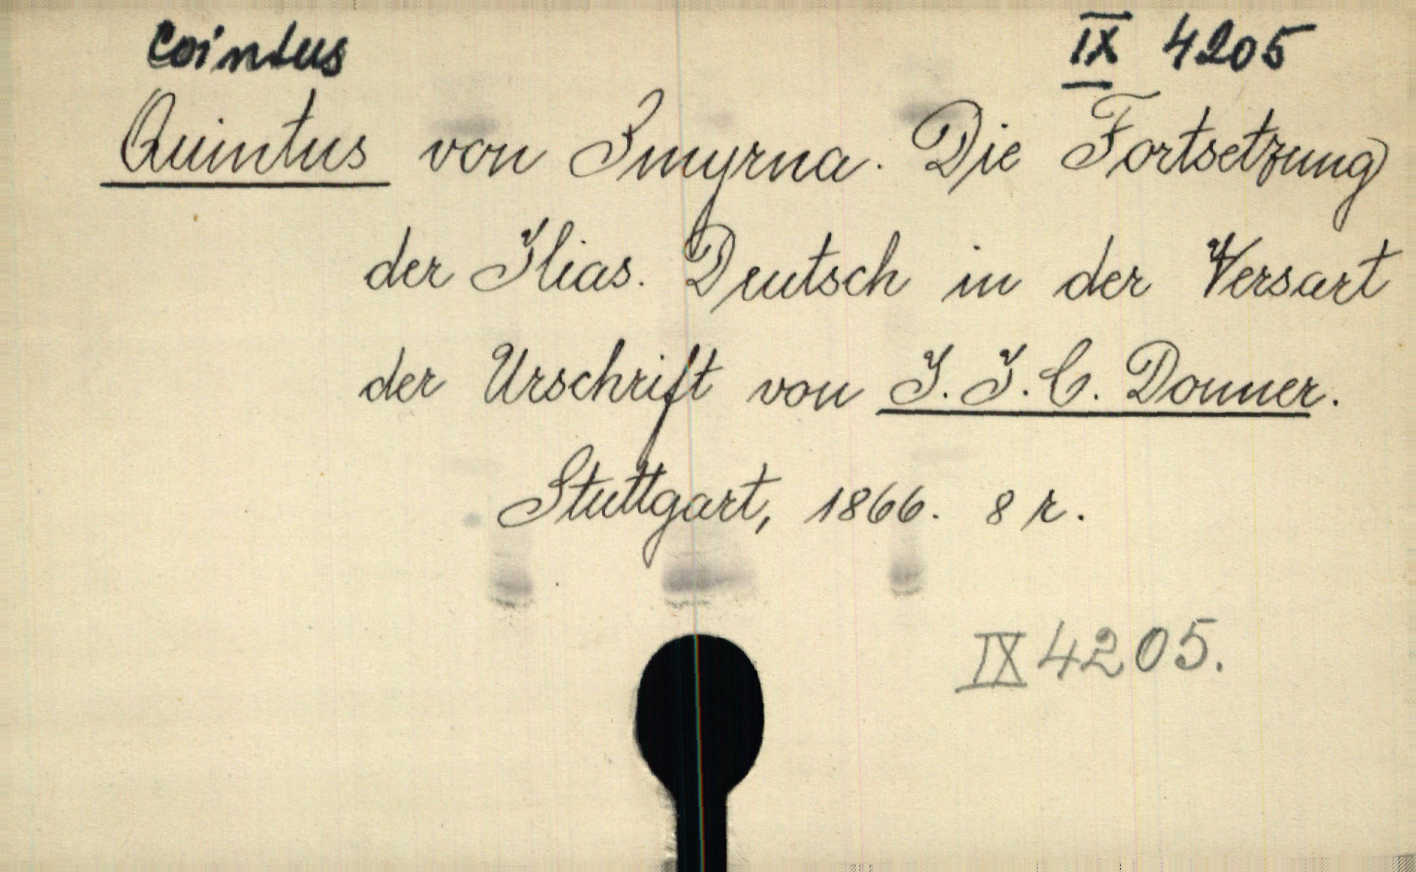 Cointus IX 4205
Quintus von Smyrna. Die Fortsetzung
der Ilias. Deutsch in der Versart
der Urschrift von J. J. C. Donner.
Stuttgart, 1866. 8 r.
IX 4205.